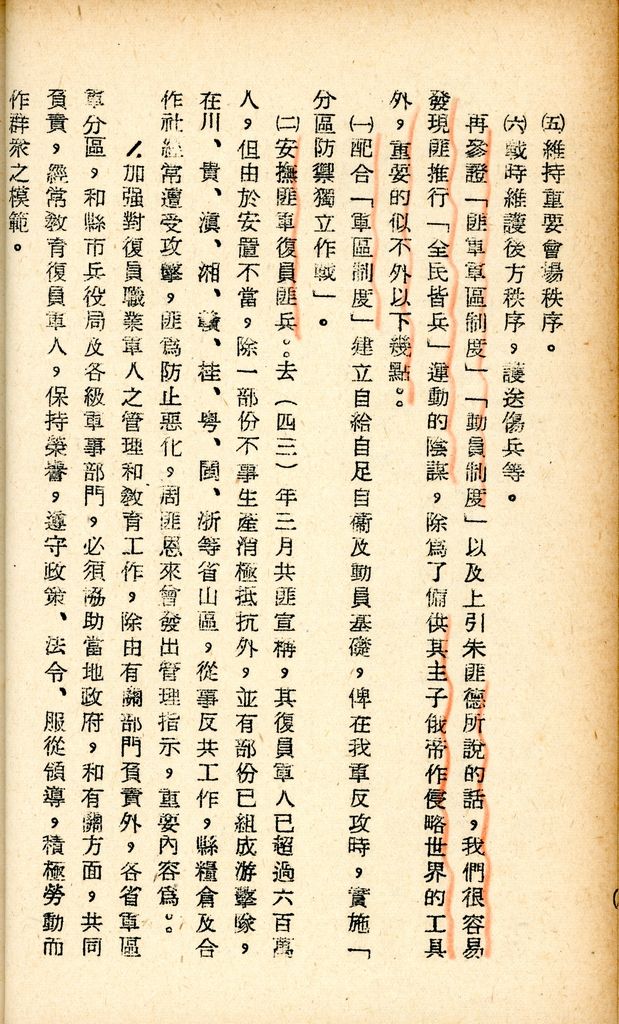 ㈤維持重要會場秩序。
㈥戰時維護後方秩序，護送傷兵等。
再參證「匪軍軍區制度」「動員制度」以及上引朱匪德所說的話，我們很容易
發現匪推行「全民皆兵」運動的陰謀，除爲了備供其主子俄帝作侵略世界的工具
外，重要的似不外以下幾點。。
㈠配合「軍區制度」建立自給自足自衛及動員基礎，俾在我軍反攻時，實施「
分區防禦獨立作戰」。
㈡安撫匪軍復員匪兵。。去（四三）年三月共匪宣稱，其復員軍人已超過六百萬
人，但由於安置不當，除一部份不事生產消極抵抗外，並有部份已組成游擊隊，
在川、貴、滇、湘、贛、桂、粵、閩、浙等省山區，從事反共工作，縣糧倉及合
作社經常遭受攻擊，匪爲防止惡化，周匪恩來曾發出管理指示，重要內容爲。。
⒈加强對復員職業軍人之管理和敎育工作，除由有關部門負責外，各省軍區
軍分區，和縣市兵役局及各級軍事部門，必須協助當地政府，和有關方面，共同
負責，經常敎育復員軍人，保持榮譽，遵守政策、法令、服從領導，積極勞動而
作群衆之模範。